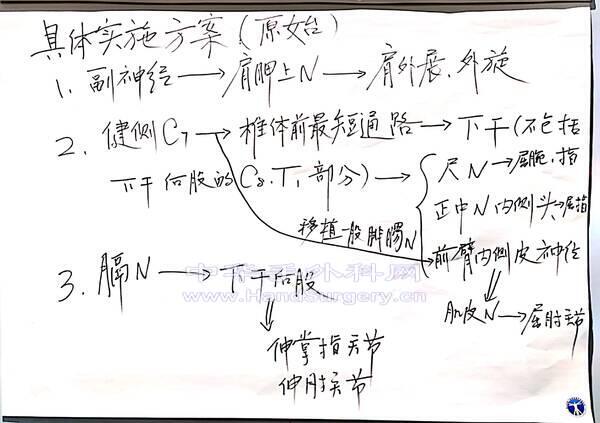 具体实施方案(原始)
1. 副神经→肩胛上N→肩外展、外旋
2. 健侧C7→椎体前最短通路→下干(不包括
下干后股的C8.T1部分)→尺N→屈腕、指
移植一股腓肠N
正中N内侧头→屈指
前臂内侧皮神经
肌皮N→屈肘关节
3. 膈N→下干后股
伸掌指关节
伸肘关节
中华手外科网
www.HandSurgery.cn